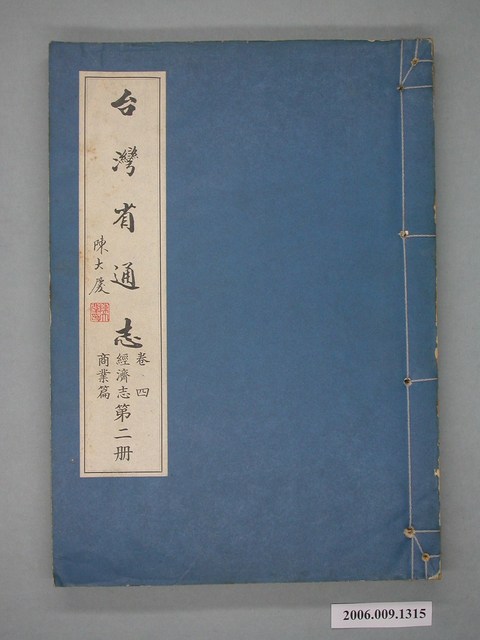 台灣省通志
卷四
經濟志
商業篇
第二册
陳大慶
2006.009.1315